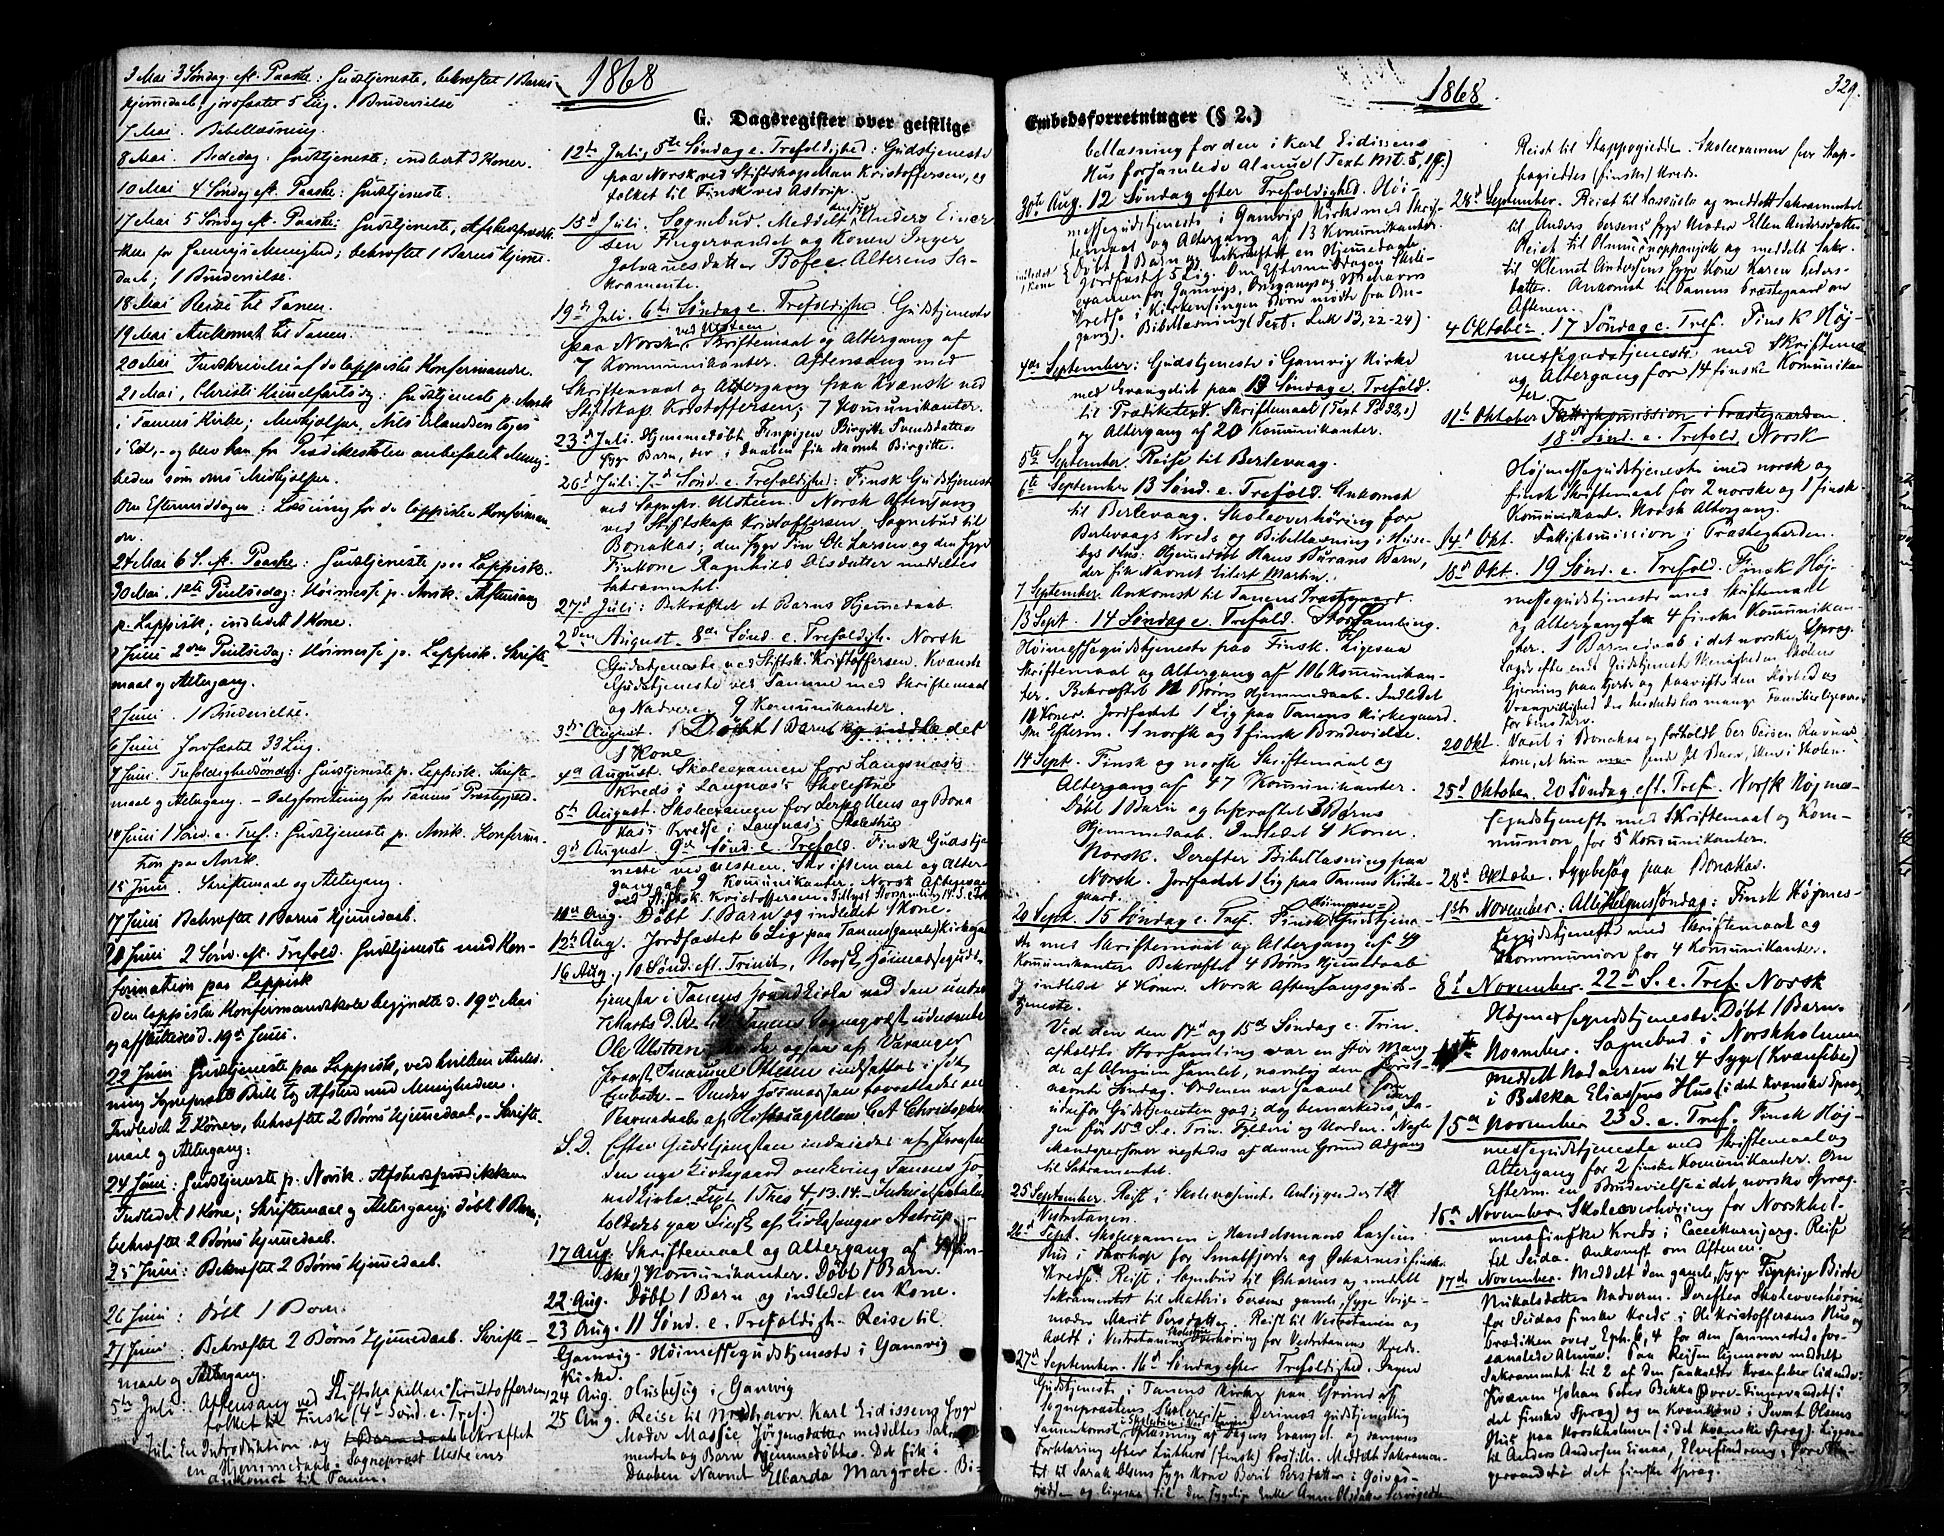 1868
G. Dagsregister over geistlige
3 Mai 3 Søndag eft. Paaske: Gudstjeneste, bekræftet 1 Barns
Hjemmedaab, jordfæstet 5 Lig. 1 Brudevielse
7 Mai. Bibellæsning.
8 Mai. Bededag: Gudstjeneste; indledt 3 Koner.
10 Mai 4 Søndag eft. Paaske: Gudstjeneste.
17 Mai 5 Søndag eft. Paaske: Gudstjeneste,
Menighed; bekræftet 1 Barns Hjemme-
daab; 1 Brudevielse.
18 Mai Reise til Tanen.
19 Mai Ankomst til Tanen.
20 Mai Indskrivelse af de lappiske Konfirmander.
21 Mai, Christi Himmelfartsdag: Gudstjeneste p. Norsk
i Tanens Kirke; Medhjælper, Nils Erlandsen toges
i Ed, - og blev han fra Prædikestolen anbefalet Menig-
heden som Medhjælper.
Om Eftermiddagen: Læsning for de lappiske Konfirman-
der.
24 Mai 6 S. eft. Paaske: Gudstjeneste paa Lappisk.
30 Mai. 1ste Pintsedag: Høimesse p. Norsk. Aftensang
p. Lappisk; indledet 1 Kone.
Juni 2den Pintsedag: Høimesse p. Lappisk. Skrifte-
maal og Altergang.
2 Juni. 1 Brudevielse.
6 Juni Jordfæstet 33 Lig.
7 Juni. Trefoldighedsøndag: Gudstjeneste p. Lappisk. Skrifte-
maal og Altergang. - Valgforretning for Tanens Præstegjeld.
14 Juni 1 Sønd. e. Tref.: Gudstjeneste p. Norsk. Konfirma-
tion paa Norsk.
15 Juni. Skriftemaal og Altergang.
17 Juni Bekræftet 1 Barns Hjemmedaab.
Juni 2 Sønd. eft. Trefold. Gudstjeneste med Kon-
firmation paa Lappisk
Den lappiske Konfirmandskole begyndte d. 19de Mai
og afsluttedes d. 19de Juni.
22 Juni Gudstjeneste paa Lappisk, ved hvilken
Sogneprest Afsked med Menigheden.
Indledet 2 Koner, bekræftet 2 Børns Hjemmedaab, - Skrifte-
maal og Altergang.
24 Juni: Gudstjeneste p. Norsk. Afskedsprædikken
Indledet 1 Kone; Skriftemaal og Altergang; døbt 1 Barn;
bekræftet 2 Børns Hjemmedaab.
25 Juni: Bekræftet 2 Børns Hjemmedaab.
26 Juni: Døbt 1 Barn.
27 Juni: Bekræftet 2 Børns Hjemmedaab. Skrifte-
maal og Altergang.
5te Juli: Aftensang ved Stiftskapellan Kristoffersen,
tolket til Finsk (4de Sønd. e. Tref.)
Juli En Introduktion og bekræftet
en Hjemmedaab. Sogneprest Ulsteens
ankomst til Tanen.
12te Juli, 5te Søndag e. Trefoldighed: Gudstjeneste
paa Norsk ved Stiftskapellan Kristoffersen, og
tolket til Finsk ved Astrup.
15d Juli. Sognebud. Meddelt Anders Einer-
sen Fingervandet og Konen Inger
Johannesdatter Alterens Sa-
kramente.
19de Juli. 6te Søndag e. Trefoldighed Gudstjeneste
ved Ulsteen
paa Norsk Skriftemaal og Altergang af
7 Kommunikanter. Aftensang med
Skriftemaal og Altergang paa Kvænsk ved
Stiftskap. Kristoffersen; 7 Kommunikanter.
23d Juli. Hjemmedøbt Finpigen Birgitte Svendsdatters
syge Barn, der i Daaben fik Navnet Birgitte.
26d Juli. 7d Sønd. e. Trefoldighed: Finsk Gudstjeneste
ved Sognepr. Ulsteen. Norsk Aftensang
ved Stiftskap Kristoffersen. Sognebud til
Bonakas; den syge Fin Ole Larsen og den syge
Finkone Ragnhild meddeltes
Sakramentet.
27d Juli: Bekræftet et Barns Hjemmedaab.
2den August. 8de Sønd. e. Trefoldigh. Norsk
Gudstjeneste ved Stiftsk. Kristoffersen. Kvænsk
Gudstjeneste ved Samme med Skriftemaal
og Nadvere. 9 Kommunikanter.
3de August. Døbt 1 Barn og indledet
1 Kone
4de August. Skoleexamen for Langnæs
Kreds i Langnæs Skolestue
5te August. Skoleexamen for og Bona
kas Kredse i Langnæs Skolestue
9de August 9de Sønd. e. Trefold. Finsk Gudstje-
neste ved Ulsteen. Skriftemaal og Alter-
gang af 9 Kommunikanter. Norsk Aftensang
ved Stiftsk. Kristoffersen.
Aug. Døbt 1 Barn og indledet 1 Kone.
12te Aug. Jordfæstet 6 Lig paa Tanens (gamle) Kirkegaard
16 Aug. 10 Sønd. eft. Trinit. Norsk Høimessegudst-
tjeneste i Tanens
Ole Ulsteen af Varanger
Efter Gudstjenesten indviedes af Provsten
den nye Kirkegaard omkring Tanens
Text 1 Thes 4, 13. 14.
af Kirkesanger Astrup.
17 Aug. Skriftemaal og Altergang af
Kommunikanter. Døbt 1 Barn.
22 Aug. Døbt 1 Barn og indledet en Kone.
23 Aug. 11 Sønd. e. Trefoldigh. Reise til
Gamvig. Høimessegudstjeneste i Gamvig
Kirke.
24 Aug. Husbesøg i Gamvig
25 Aug. Reise til Karl Eidissens syge
Moder Massie Jørgensdatter meddeltes Sakra-
mentet og Barn hjemmedøbtes. Det fik i
Daaben Navnet Ellarda Margrete. Bi-
1868
329.
Embedsforretninger (§ 2.)
bellæsning for den i Karl Eidissens
Hus forsamlede Almue (Text Mt. 5, 1
30te Aug. 12 Søndag efter Trefoldighed. Høi-
messegudstjeneste i Gamvigs Kirke med Skrif-
temaal og Altergang af 13 Kommunikanter.
Døbt 1 Barn og bekræftet en Hjemmedaab
Jordfæstet 5 Lig. Om Eftermiddagen Skole-
examen for Gamvigs, Omgangs og Mehavns
Kredse i Kirken
gang). Bibellæsning (Text. Luk 13, 22-24).
4de September: Gudstjeneste i Gamvig Kirke
med Evangeliet paa 13 Søndag e. Trefold.
til Prædiketext. Skriftemaal (Text Ps 32, 1)
og Altergang af 20 Kommunikanter.
5te September. Reise til Berlevaag.
6te September 13 Sønd. e. Trefold. Ankomst
til Berlevaag. Skoleoverhøring for
Berlevaags Kreds og Bibellæsning i
Hus: Hjemmedøbt Hans Burans Barn,
der fik Navnet Eilert Martin.
7 September. Ankomst til Tanens Præstegaard.
13 Sept. 14 Søndag e. Trefold. Storsamling.
Høimessegudstjeneste paa Finsk. Ligesaa
Skriftemaal og Altergang af 106 Kommunikan-
ter. Bekræftet 12 Børns Hjemmedaab. Indledet
12 Koner. Jordfæstet 1 Lig paa Tanens Kirkegaard.
Om Efterm. 1 norsk og 1 finsk Brudevielse.
14 Sept. Finsk og norsk Skriftemaal og
Altergang af 47 Kommunikanter.
Døbt 1 Barn og bekræftet 3 Børns
Hjemmedaab. Indledet 4 Koner.
Norsk. Derefter Bibellæsning paa
Norsk. Jordfæstet 1 Lig paa Tanens Kirke-
gaard.
20 Sept. 15 Søndag e. Tref. Finsk Gudstjene-
ste med Skriftemaal og Altergang af 49
Kommunikanter. Bekræftet 4 Børns Hjemmedaab
og indledet 4 Koner. Norsk Aftensangsgudst-
tjeneste.
Ved den den 14d og 15d Søndag e. Trin.
afholdte Storsamling var en stor Mæng-
de af Almuen samlet, navnlig den først-
nævnte Søndag. Ordenen var saavel
udenfor Gudstjenesten god; dog bemærkedes
gen før 15d S. e. Trin. Fylderi og Uorden. Nogle
Mandspersoner negtedes af denne Grund Adgang
til Sakramentet.
25 September. Reist i Skolevæsenets Anliggender til
Vestertanen.
26d Sept. Skoleexamen i Handelsmand Larsens
Hus i for Smalfjords og
Reist i Sognebud til og meddelt
Sakramentet til Mathis Persens gamle, syge Svige-
moder Marit Persdatter. Reist til Vestertanen og
holdt i Vestertanens Overhøring for Vestertanens Kreds.
27d September. 16d Søndag efter Trefoldighed. Ingen
Gudstjeneste i Tanens Kirke paa Grund af
Sogneprestens Skolereise. Derimod gudstjenestlig
Sammenkomst Oplæsning af Dagens Evangel. og sammes
Forklaring efter Luthers (finsk) Postille. Meddelt Sakramen-
tet til Sarak Olsens syge Kone Berit Persdatter i
og ligesaa til den sygelige Enke Anne Olsdatter
Reist til Stappogiedde. Skoleexamen for Stap-
pogieddes (finske) Kreds.
28d September. Reist til og meddelt Sakramentet
til Anders Persens syge Moder Ellen Andersdatter
Reist til og meddelt Sakr.
til Klemet Andersens syge Kone Karen Peders-
datter. Ankomst til Tanens Præstegaard om
Aftenen.
4 Oktober 17 Søndag e. Tref. Finsk Høj-
messegudstjeneste med Skriftemaal
og Altergang for 14 finske Kommunikan
ter
11te Oktober Fattigkommission i Præstegaarden.
18de Sønd. e. Trefold. Norsk
Højmessegudstjeneste med norsk og
finsk Skriftemaal for 2 norske og 1 finsk
Kommunikant. Norsk Altergang.
14d Okt. Fattigkommission i Præstegaarden.
18d Okt. 19 Sønd. e. Trefold. Finsk Høj-
messegudstjeneste med Skriftemaal
og Altergang for 4 finske Kommunikan-
ter. 1 Barnedaab i det norske Sprog.
Lagde efter endt Gudstjeneste Menigheden Skolens
Gjerning paa Hjerte og paaviste den Haardhed og
Uvangvillighed
20 Okt. Været i Bonakas og forholdt Per Persen
25d Oktober 20 Søndag eft. Tref. Norsk Højmes-
segudstjeneste med Skriftemaal og Kom-
munion for 5 Kommunikanter.
28d Oktober. Sygebesøg paa Bonakas.
1ste November: Allehelgensøndag: Finsk Højmes-
segudstjeneste med Skriftemaal og
Kommunion for 4 Kommunikanter.
8d November. 22d S. e. Tref. Norsk
Højmessegudstjeneste. Døbt 1 Barn.
November. Sognebud i Norskholmen
meddelt Nadveren til 4 Syge (Kvænfeber)
i Bekka Eliassens Hus i det kvænske Sprog
15de November 23 S. e. Tref. Finsk Høj-
messegudstjeneste med Skriftemaal og
Altergang for 2 finske Kommunikanter. Om
Efterm. en Brudevielse i det norske Sprog.
16de November. Skoleoverhøring for Norskhol-
mens finske Kreds i Reise
til Seida. Ankomst om Aftenen.
17de November. Meddelt den gamle, syge Finpige Birte
Nikolsdatter Nadveren. Derefter Skoleoverhøring
for Seidas finske Kreds i Ole Kristoffersens Hus og
Prædiken over Eph. 6, 4 for den sammesteds for-
samlede Almue. Paa Reisen hjemover meddelt
Sakramentet til 2 af den saakaldte Kvænfeber lidende:
Kvænen Johan Peter Bekka
det finske Sprog) og en Kvænkone i Svent Olsens
Hus paa Norskholmen (i det kvænske Sprog). Ligesaa
til Anders Andersen
det finske Sprog.